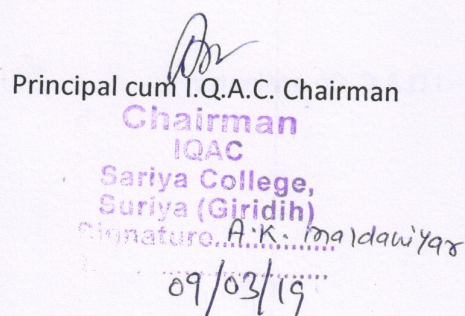 Principal cum I.Q.A.C. Chairman
Chairman
IQAC
Sariya College,
Suriya (Giridih)
Signature..A.K. Maldaniyar
09/03/19